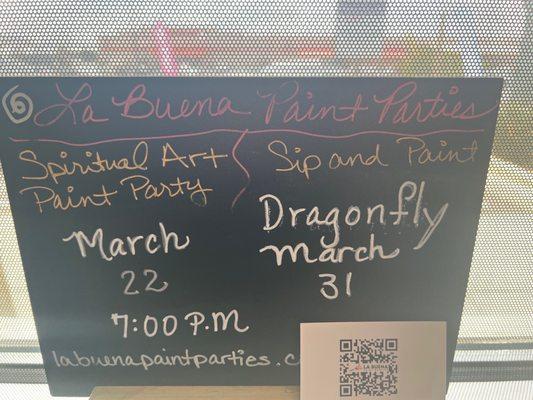 La Buena Paint Parties
Spiritual Art
Paint Party
March
22
7:00 P.M
Sip and Paint
Dragonfly
March
31
labuenapaintparties.c
LA BUENA